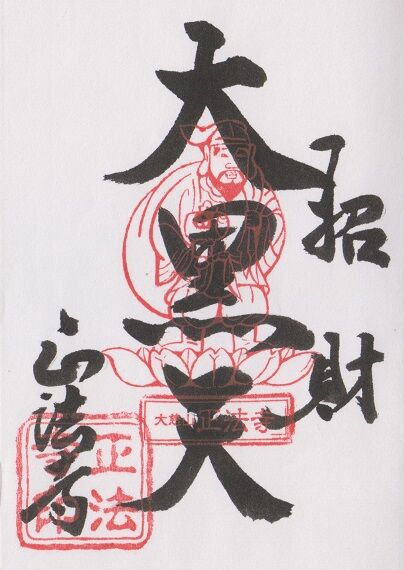 招財
大黒天
正法寺
大慈山 正法寺
正法